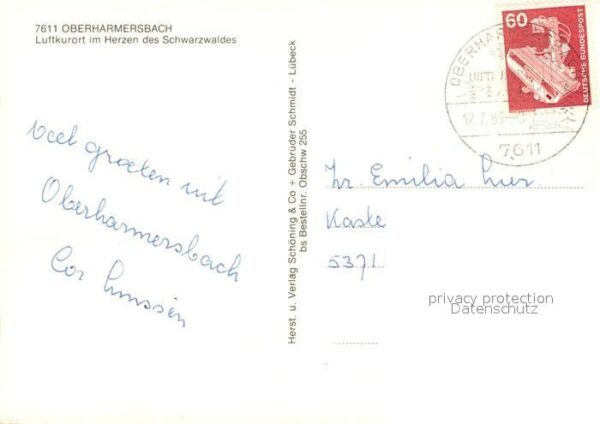 7611 OBERHARMERSBACH
Luftkurort im Herzen des Schwarzwaldes
Veel groeten uit
Oberharmersbach
Cor
Herst. u. Verlag Schöning & Co + Gebrüder Schmidt - Lübeck
bs Bestellnr. Obschw 255
60
DEUTSCHE BUNDESPOST
OBERHARMERSBACH
7611
Emilia
Kaske
5371
privacy protection
Datenschutz